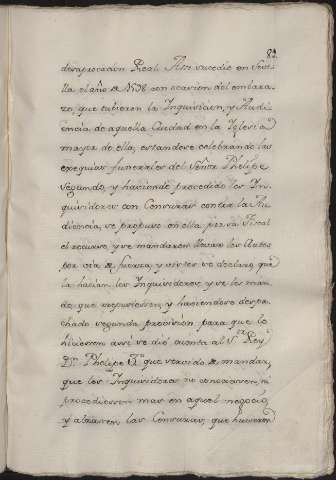 82.
desaprovacion Real. Assi sucedio en Sevi-
lla el año de 1598 con ocasion del embara-
zo, que tubieron la Inquisicion, y Audi-
encia de aquella Ciudad en la Iglesia
mayor de ella, estandose celebrando las
exequias funerales del Señor Phelipe
Segundo, y haviendo procedido los In-
quisidores con Censuras contra la Au-
diencia, se propuso en ella por su Fiscal
el recurso, y se mandaron llevar los Autos
por via de fuerza, y vistos se declaro, que
la hacian los Inquisidores, y se les man-
do, que repusiessen, y haviendose despa-
chado segunda provision para que lo
hiciessen assi se dio cuenta al Sr. Rey
Dn. Phelipe 3º que servido de mandar,
que los Inquisidores no conociessen, ni
procediessen mas en aquel negocio,
y alzassen las Censuras, que huviessen